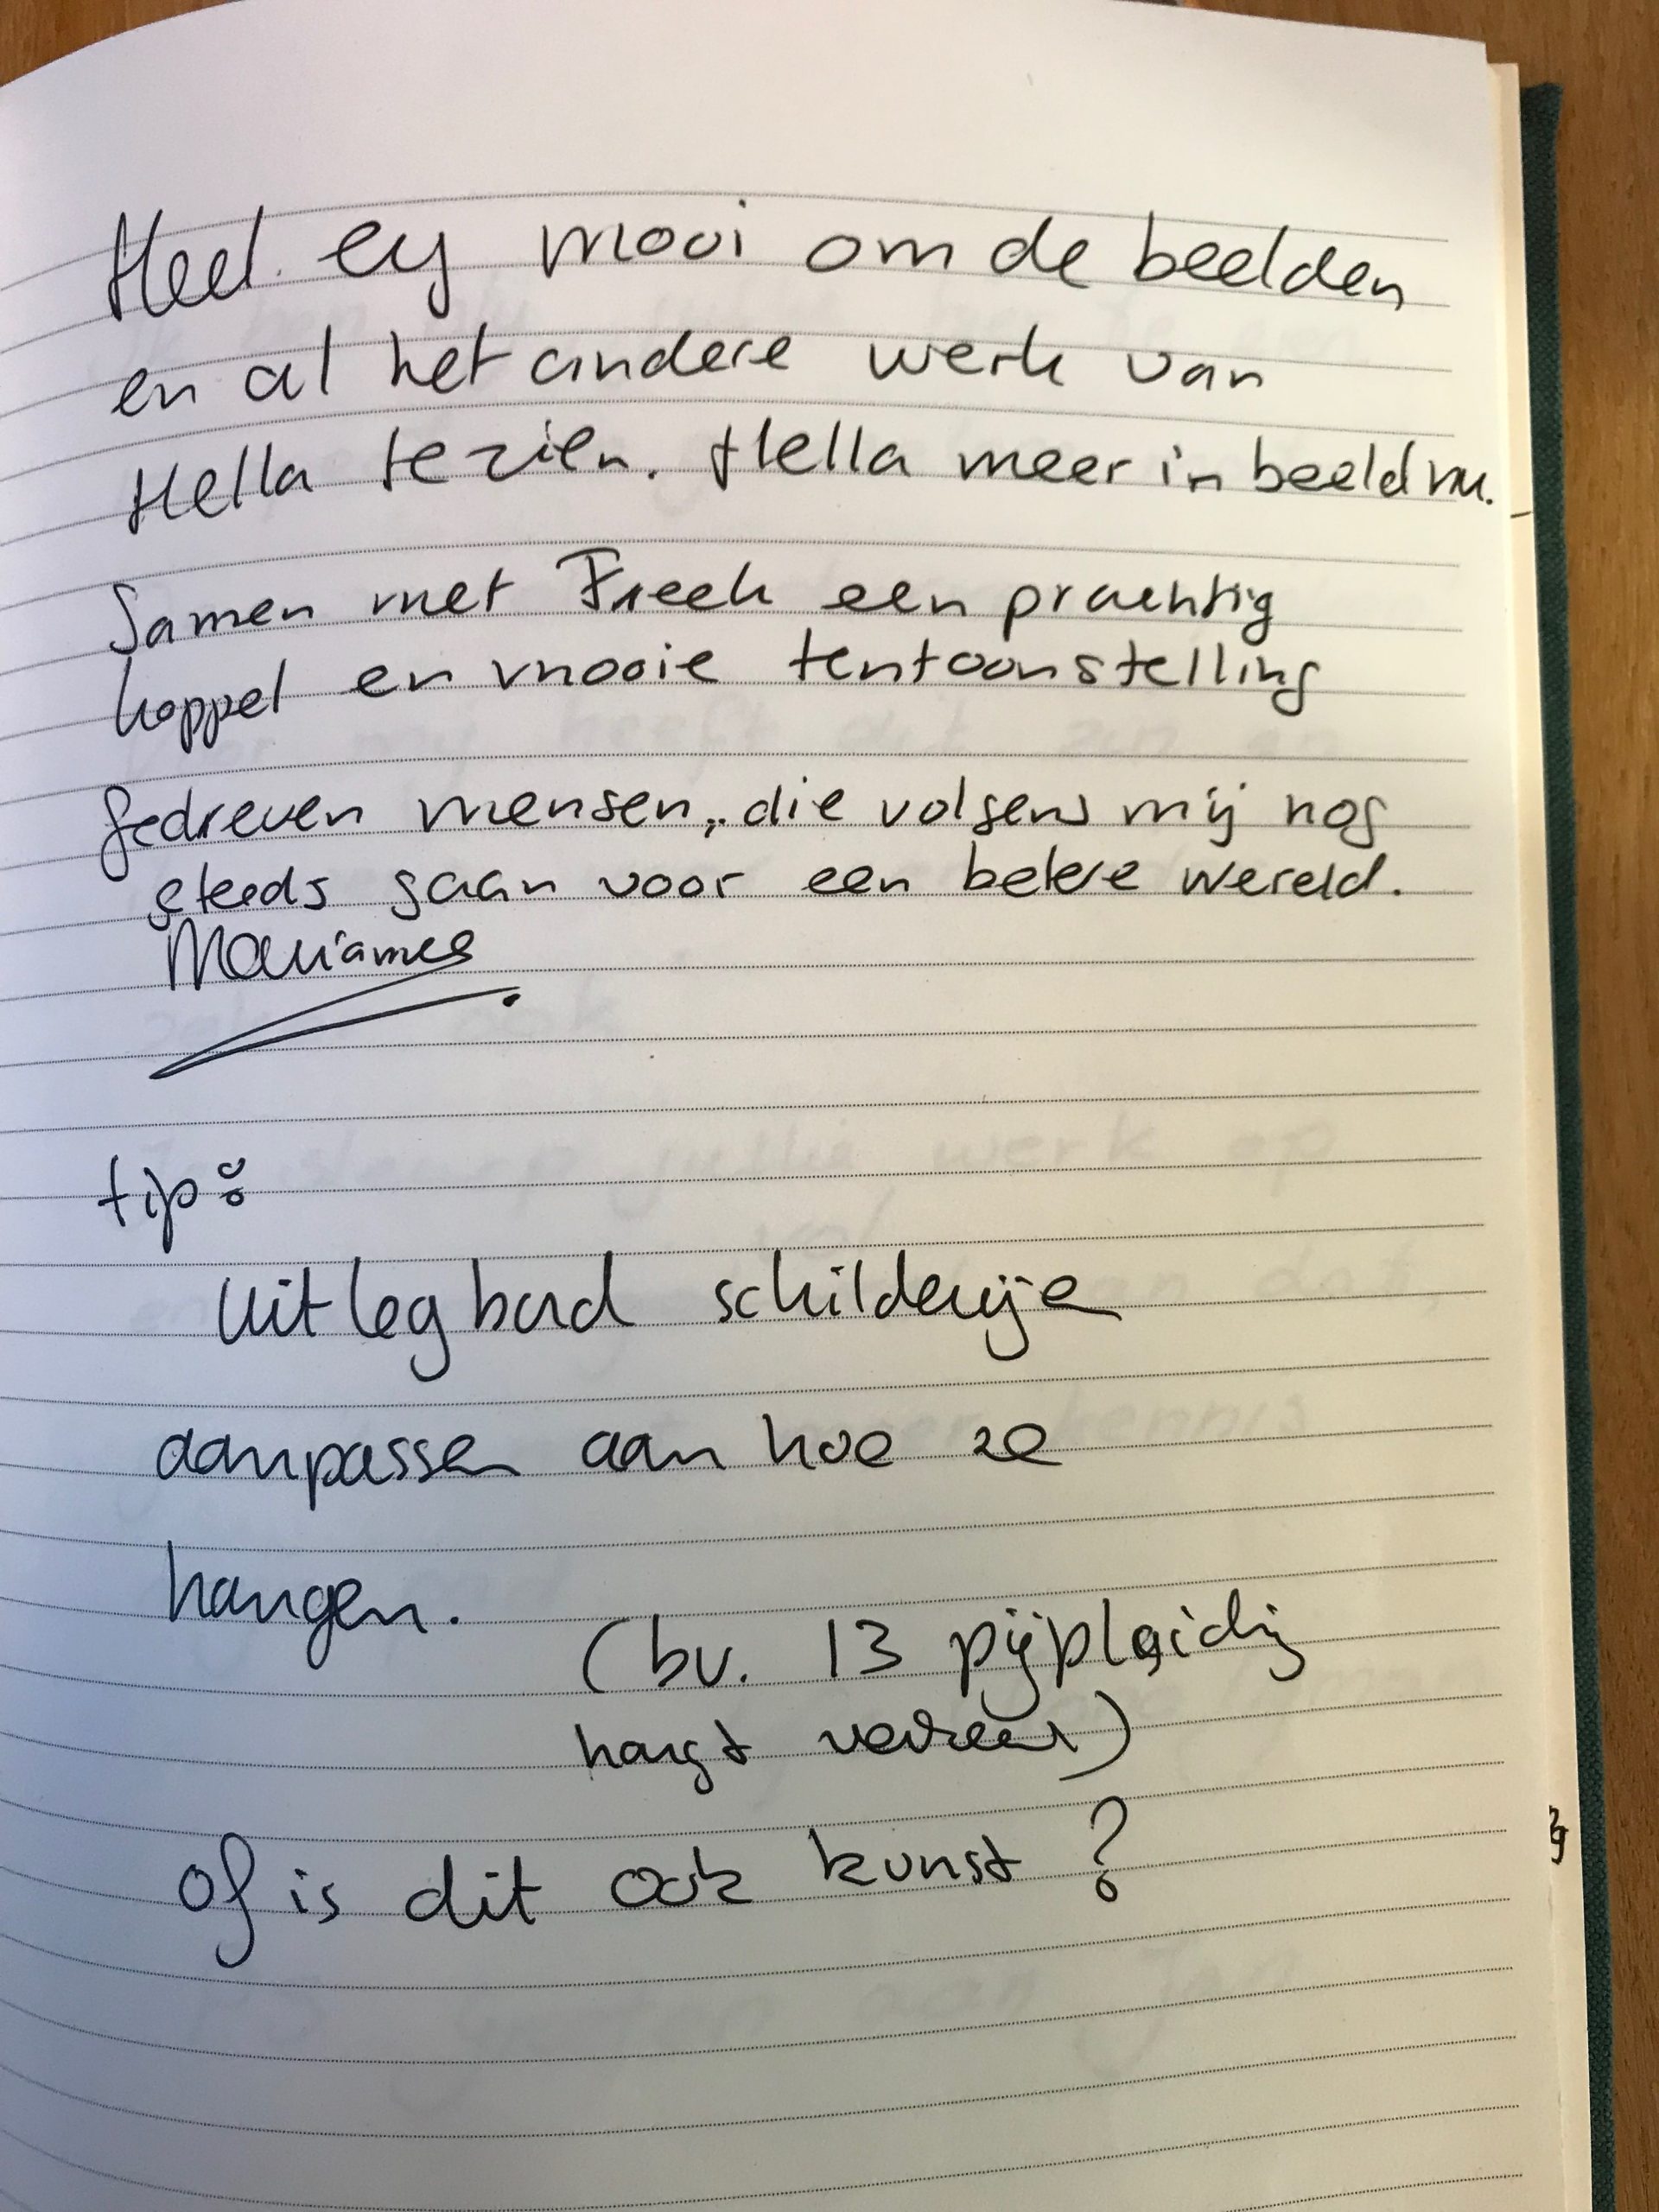 Heel erg mooi om de beelden
en al het andere werk van
Hella te zien. Hella meer in beeld nu.
Samen met Freek een prachtig
koppel en mooie tentoonstelling
gedreven mensen, die volgens mij nog
steeds gaan voor een betere wereld.
Marianne
tip:
uitleg bord schilderije
aanpassen aan hoe ze
hangen.
(bv. 13 pijpleiding
hangt verkeerd)
of is dit ook kunst?